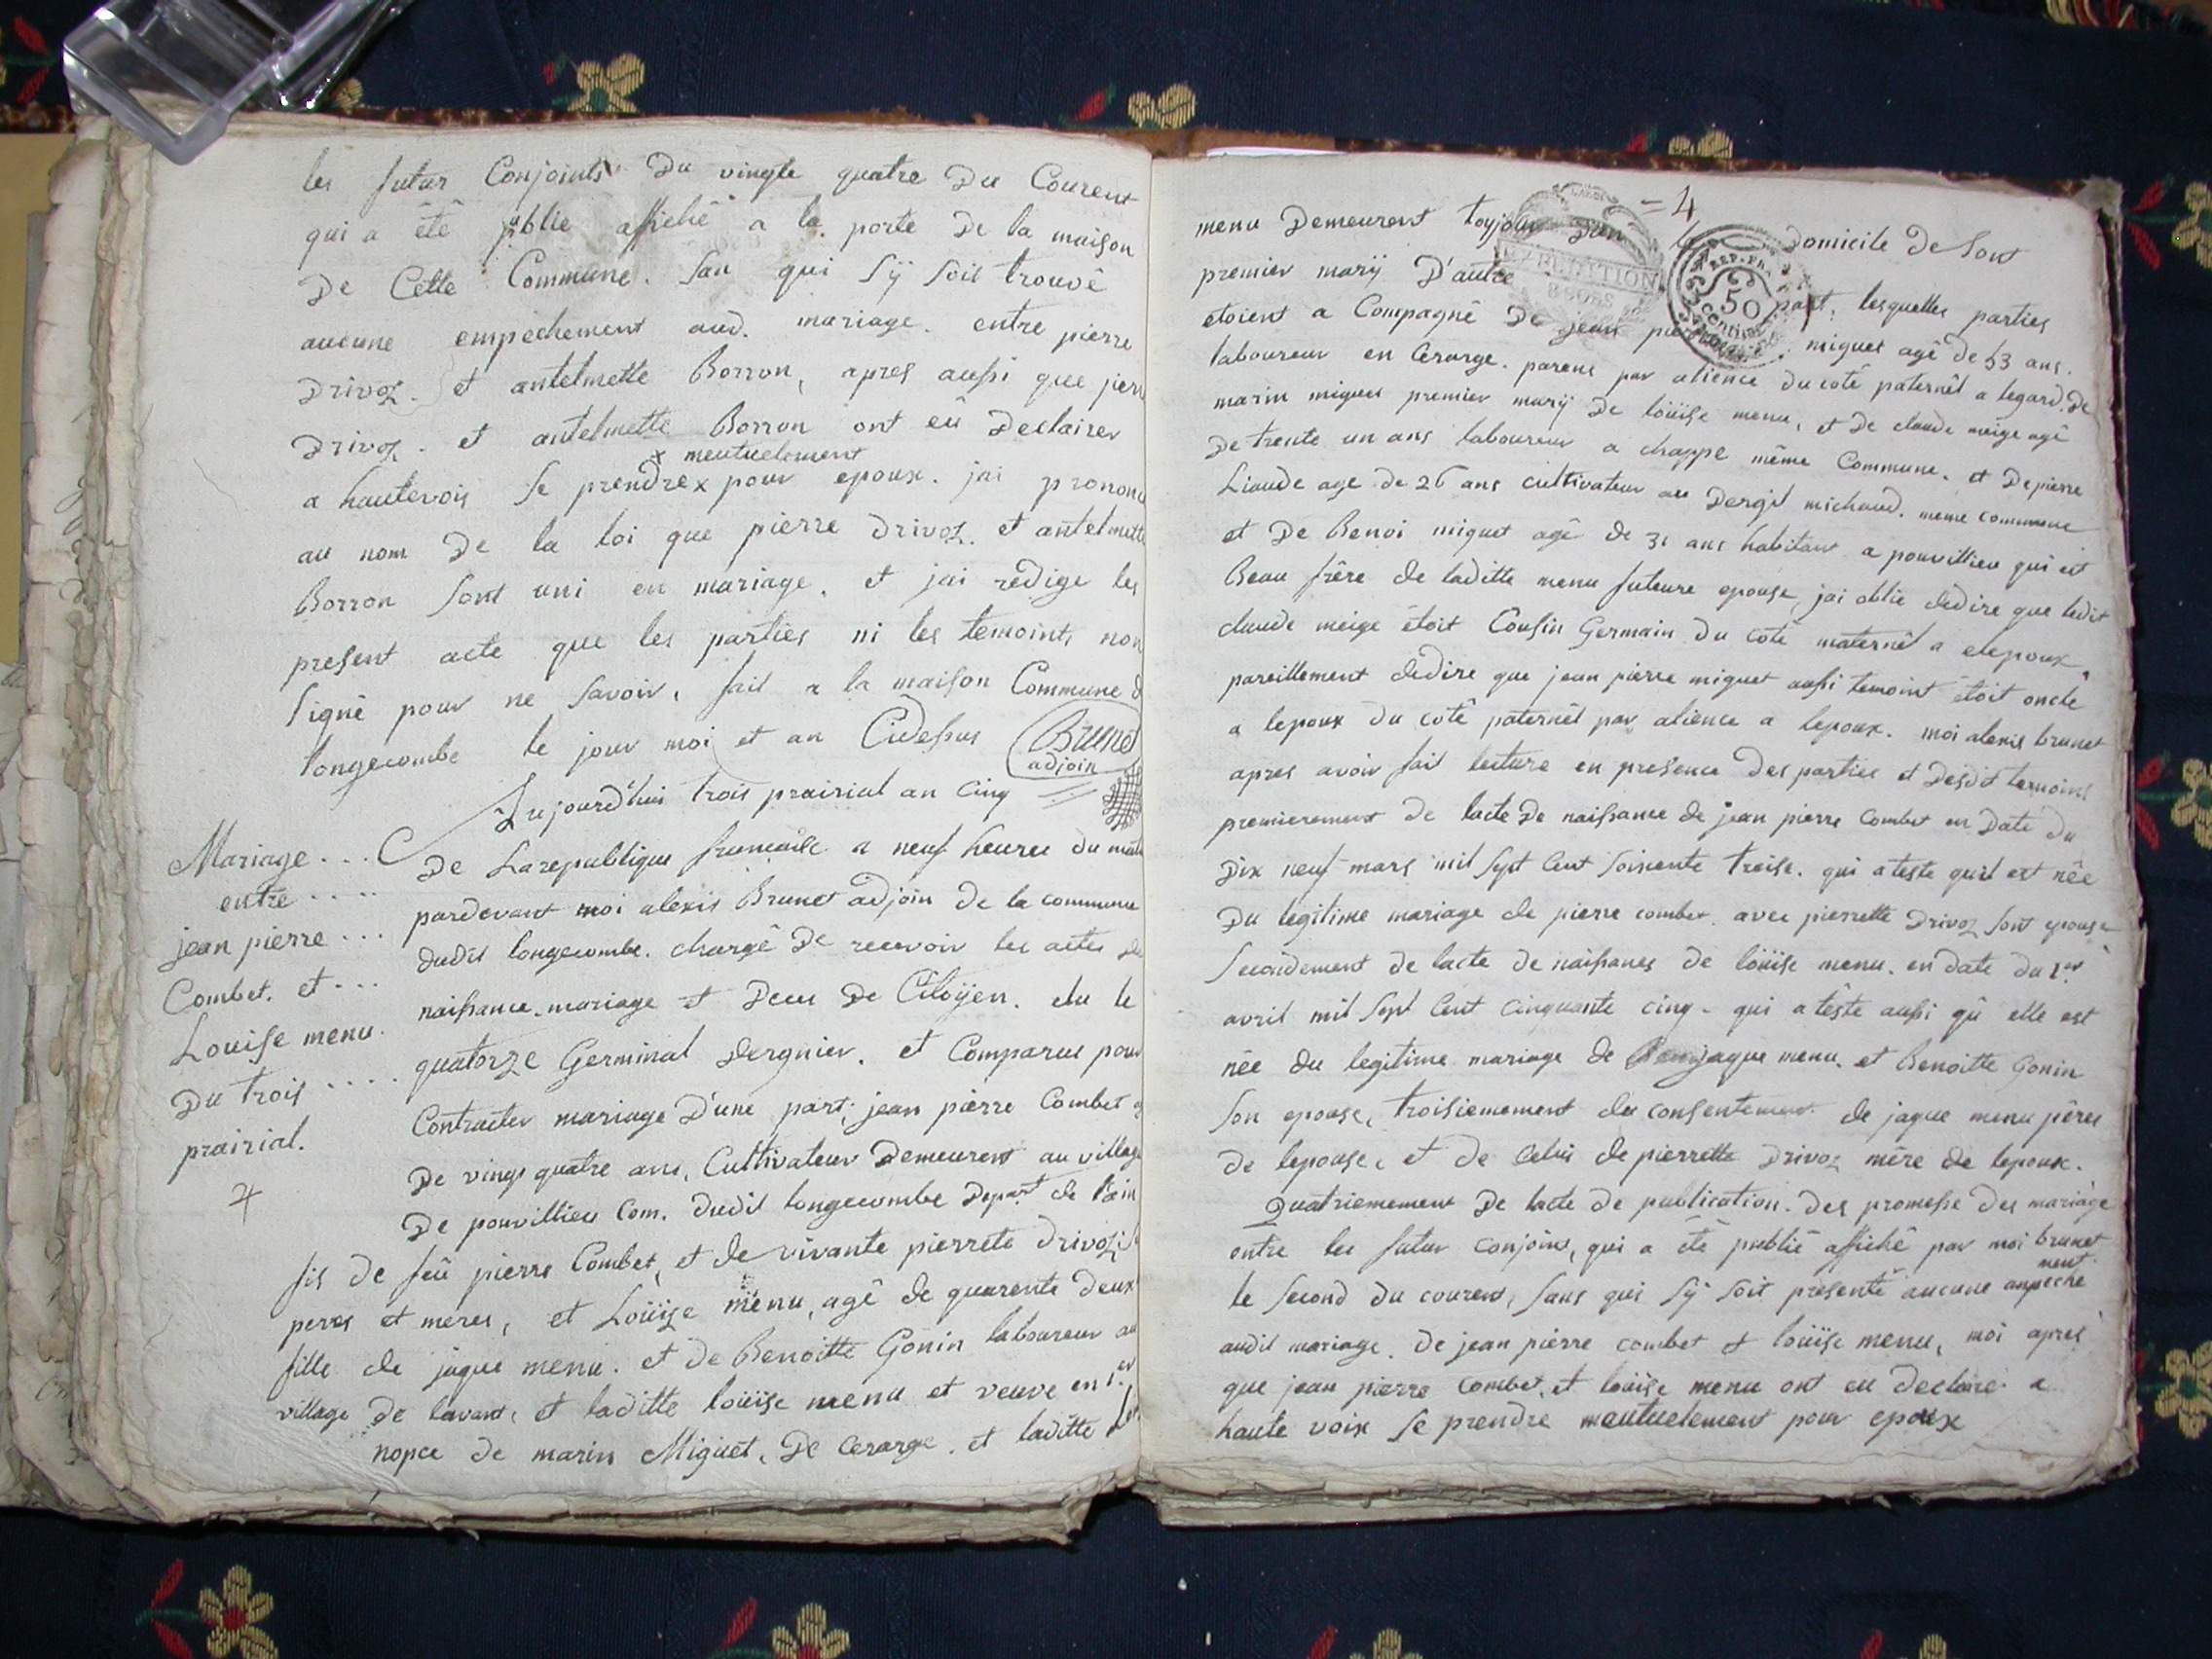 les futur Conjoints Du vingte quatre Du Courent
qui a êtê publie affichê a la porte De la maison
De Cette Commune. San qui Sÿ Soit trouvê
aucune empechement aud. mariage. entre pierre
Drivoz. et antelmette Borron, apres aussi que pierre
Drivoz. et antelmette Borron ont eû Declairer
x meutuelement
a hautevois Se prendre x pour epoux. jai prononc
au nom De la loi que pierre Drivoz. et antelmette
Borron Sont uni en mariage. et jai rèdige les
present acte que les parties ni les temoints non
Signê pour ne Savoir, fait a la maison Commune d
longecombe le jour moi et an Cidessus
Brunet
adjoin
Aujourd'hui trois prairial an Cinq
De La republique francaise a neuf heures du matin
pardevant moi alexis Brunet adjoin de la commune
dudit longecombe. chargê De recevoir les actes de
naissance. mariage et Deces De Citoÿen. elu le
quatorze Germinal dergnier. et Comparus pour
Contracter mariage D'une part; jean pierre Combet
De vingt quatre ans, Cultivateur Demeurent au village
De pouvillieu Com. dudit longecombe Depart de l'ain
fis de feû pierre Combet, et de vivante pierrete Drivoz
peres et meres, et Loüise menu, agê de quarente deux
fille de jaque menu. et de Benoitte Gonin laboureur au
village De lavant, et laditte loüise menu et veuve en 1.er
nopce de marin Miguet. De Cerarge. et laditte
Mariage . . .
entre . . . .
jean pierre . . .
Combet. et . . .
Louise menu.
Du trois . . . .
prairial.
4
= 4
menu Demeurent toujour Domicile De Sont
premier marÿ D'autre part, lesquelles parties
etoient a Compagnê De jean miguet agê de 53 ans.
laboureur en Cerarge. parens par alience du cotê paternêl a legard. De
marin miguet premier marÿ De loüise menu, et De claude meige agê
De trente un ans laboureur a chappe même Commune. et De pierre
Liaude age de 26 ans cultivateur au Dergit michaud. meme commune
et De Benoi miguet agê de 31 ans habitant a pouvillieu qui est
Beau frêre de laditte menu future epouse, jai oblie dedire que ledit
claude meige êtoit Cousin Germain du cotê maternêl a elepoux
pareillement dedire que jean pierre miguet aussi temoint êtoit oncle
a lepoux du cotê paternêl par alience a lepoux. moi alexis brunet
apres avoir fait lecture en presence Des parties et Desdit temoins
premierement de lacte De naissance de jean pierre Combet en Date du
Dix neuf mars mil Sept Cent Soixente treise. qui ateste quil est nêe
Du legitime mariage de pierre combet. avec pierrette Drivoz Sont epouse
Secondement de lacte de naissances de loüise menu. en date du 1.er
avril mil Sept Cent Cinquante cinq - qui a têste aussi qû elle est
nêe du legitime mariage de jaque menu. et Benoitte Gonin
Son epouse, troisiemement du consentement de jaque menu pêres
de lepouse, et de Celui de pierrette Drivoz mêre de lepoux.
Quatriemement De lacte de publication. Des promesse Des mariage
entre les futur conjoins, qui a êtê publiê affichê par moi brunet
ment
le Second du courent, Sans qui Sÿ Soit presentê aucune anpeche
audit mariage. De jean pierre combet et loüise menu, moi apres
que jean pierre Combet. et loüise menu ont eu declaire a
haute voix Se prendre meutuelement pour epoux
REP. FRA.
50